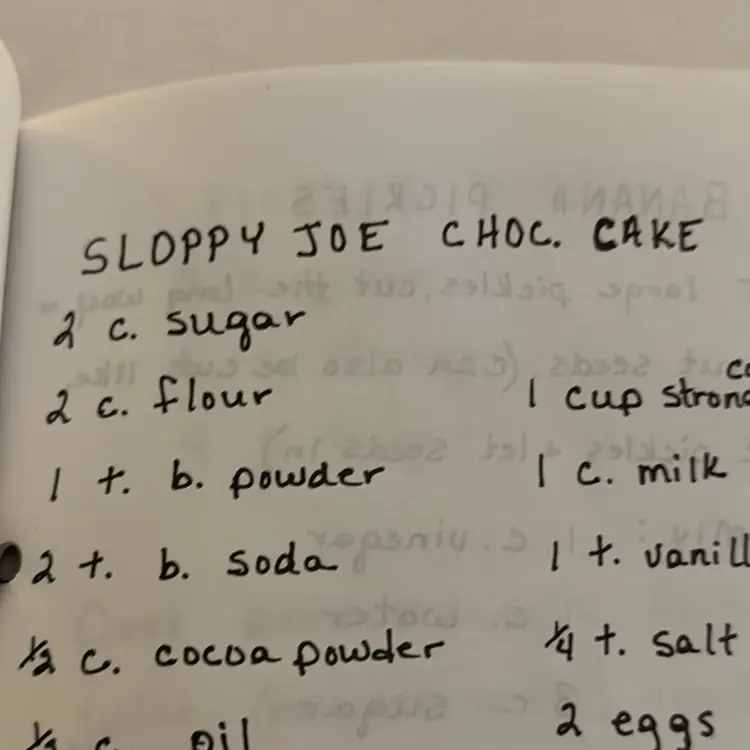 SLOPPY JOE CHOC. CAKE
2 c. sugar
2 c. flour
1 t. b. powder
2 t. b. soda
1/2 c. cocoa powder
c. oil
1 cup strong
1 c. milk
1 t. vanill
1/4 t. salt
2 eggs